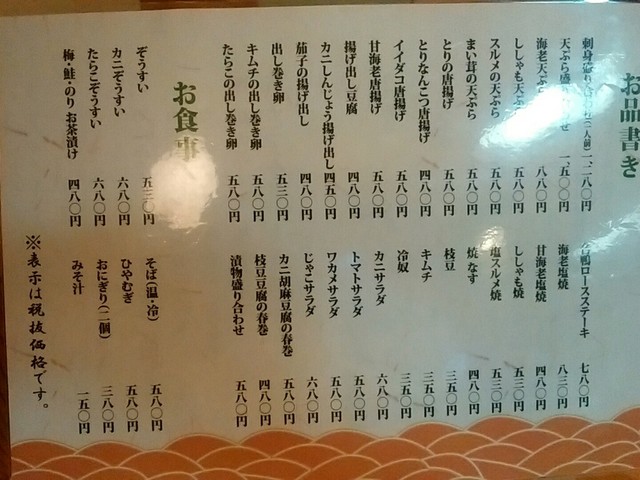 お品書き
刺身盛り合わせ(二人前) 二、二八〇円
天ぷら盛り合わせ 一、五〇〇円
海老天ぷら 八八〇円
ししゃも天ぷら 五八〇円
スルメの天ぷら 五八〇円
まい茸の天ぷら 五八〇円
とりの唐揚げ 五八〇円
とりなんこつ唐揚げ 四八〇円
イイダコ唐揚げ 五八〇円
甘海老唐揚げ 五八〇円
揚げ出し豆腐 四八〇円
カニしんじょう揚げ出し 四五〇円
茄子の揚げ出し 四八〇円
出し巻き卵 五三〇円
キムチの出し巻き卵 五八〇円
たらこの出し巻き卵 五八〇円
合鴨ロースステーキ 七八〇円
海老塩焼 八三〇円
甘海老塩焼 四八〇円
ししゃも焼 五三〇円
塩スルメ焼 五三〇円
焼なす 四八〇円
枝豆 三五〇円
キムチ 三五〇円
冷奴 三五〇円
カニサラダ 六八〇円
トマトサラダ 五八〇円
ワカメサラダ 五八〇円
じゃこサラダ 六八〇円
カニ胡麻豆腐の春巻 五八〇円
枝豆豆腐の春巻 四八〇円
漬物盛り合わせ 五八〇円
お食事
ぞうすい 五三〇円
カニぞうすい 六八〇円
たらこぞうすい 六八〇円
梅・鮭・のり お茶漬け 四八〇円
そば(温・冷) 五八〇円
ひやむぎ 五八〇円
おにぎり(二個) 三八〇円
みそ汁 一五〇円
※表示は税抜価格です。